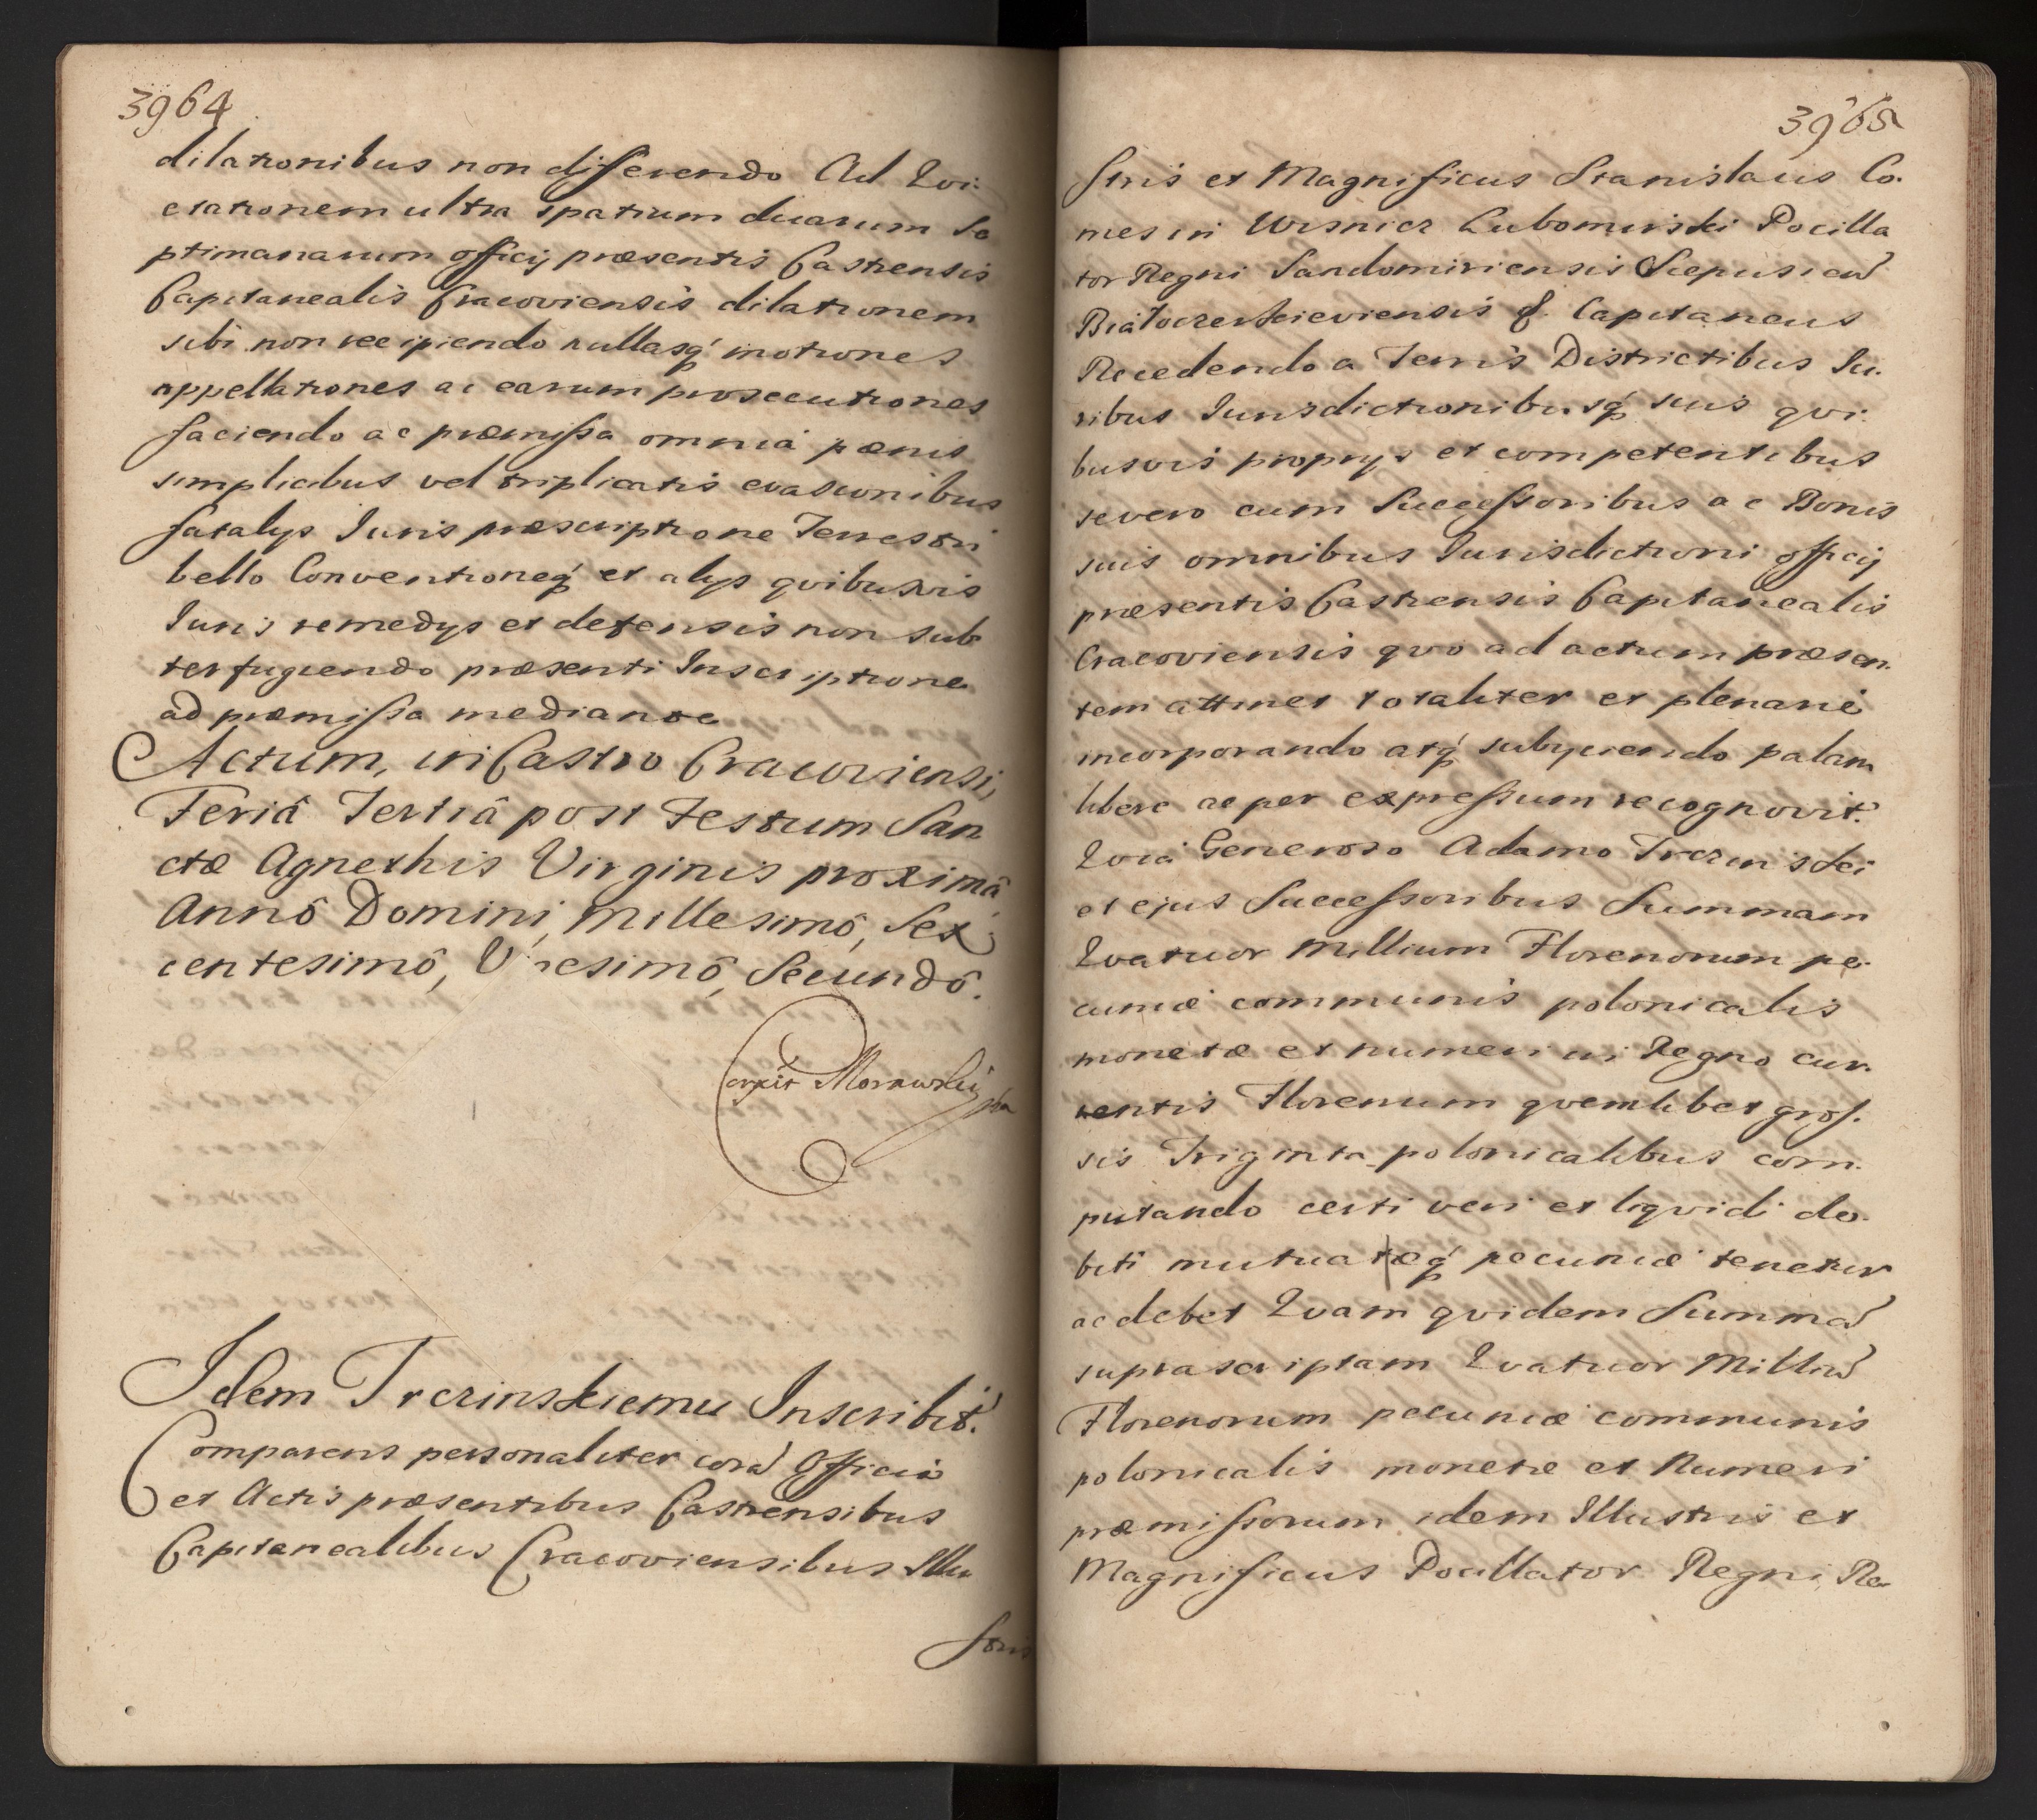 3964
dilationibus non differendo Ad Evi-
ctationem ultra spatium duarum Se
ptimanarum officij præsentis Castrensis
Capitanealis Cracoviensis dilationem
sibi non recipiendo nullasq́ motiones
appellationes ac earum prosecutiones
faciendo ac præmissa omnia pænis
simplicibus vel triplicatis evasionibus
fatalÿs Iuris præscriptione Terrestri
bello Conventioneq́ et alÿs qvibusvis
Iuris remedÿs et defensis non sub
terfugiendo præsenti Inscriptione
ad præmissa mediante
Actum, in Castro Cracoviensi,
Feriâ Tertiâ post Festum San
ctæ Agnethis Virginis proximâ
Annô Domini, Millesimô, Sex
centesimô, Vicesimô, Secundô.
Corexit Morawski
Idem Trczinskiemu Inscribit.
Comparens personaliter corã Officio
et Actis præsentibus Castrensibus
Capitanealibus Cracoviensibus Illu
stris
3965
stris et Magnificus Stanislaus Co-
mes in Wisnicz Lubomirski Pocilla
tor Regni Sandomiriensis Scepusieñ
Białocerkieviensis &. Capitaneus
Recedendo a Terris Districtibus Iu-
ribus Iurisdictionibusq́ suis qvi-
busvis proprÿs et competentibus
severo cum Successoribus ac Bonis
suis omnibus Iurisdictioni officij
præsentis Castrensis Capitanealis
Cracoviensis qvo ad actum præsen-
tem attinet totaliter et plenarie
incorporando atq́ subÿciendo palam
libere ac per expressum recognovit.
Qvia Generoso Adamo Trczinski
et ejus Successoribus Summam
Qvatuor Millium Florenorum pe-
cuniæ communis polonicalis
monetæ et numeri in Regno cur-
rentis Florenum qvemlibet gros-
sis Triginta polonicalibus com-
putando certi veri et liqvidi de-
biti mutuatæq́ pecuniæ tenetur
ac debet Qvam qvidem Summã
suprascriptam Qvatuor Milliũ
Florenorum pecuniæ communis
polonicalis monetæ et Numeri
præmissorum idem Illustris et
Magnificus Pocillator Regni Re-